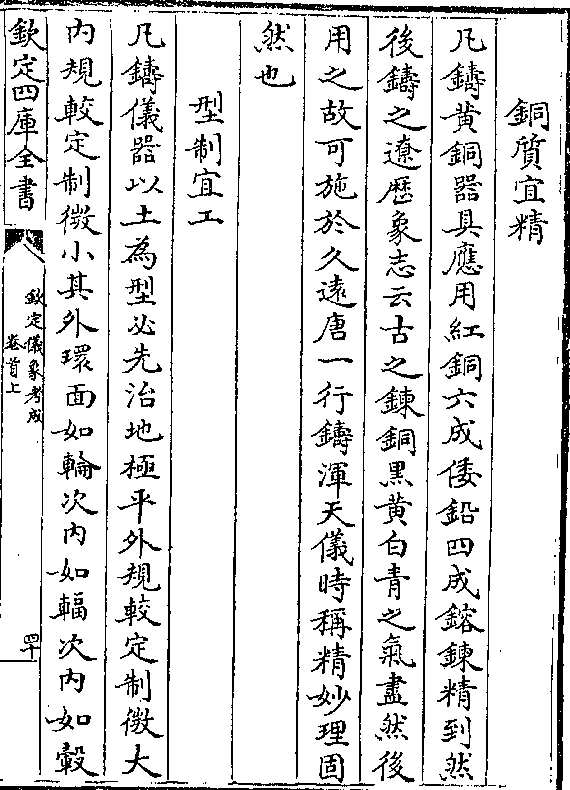 銅質宜精
凡鑄黃銅器具應用紅銅六成倭鉛四成鎔鍊精到然
後鑄之遼歷象志云古之鍊銅黑黃白青之氣盡然後
用之故可施於久遠唐一行鑄渾天儀時稱精妙理固
然也
型制宜工
凡鑄儀器以土為型必先治地極平外規較定制微大
內規較定制微小其外環面如輪次內如輻次內如轂
欽定四庫全書
欽定儀象考成
卷首上
四十